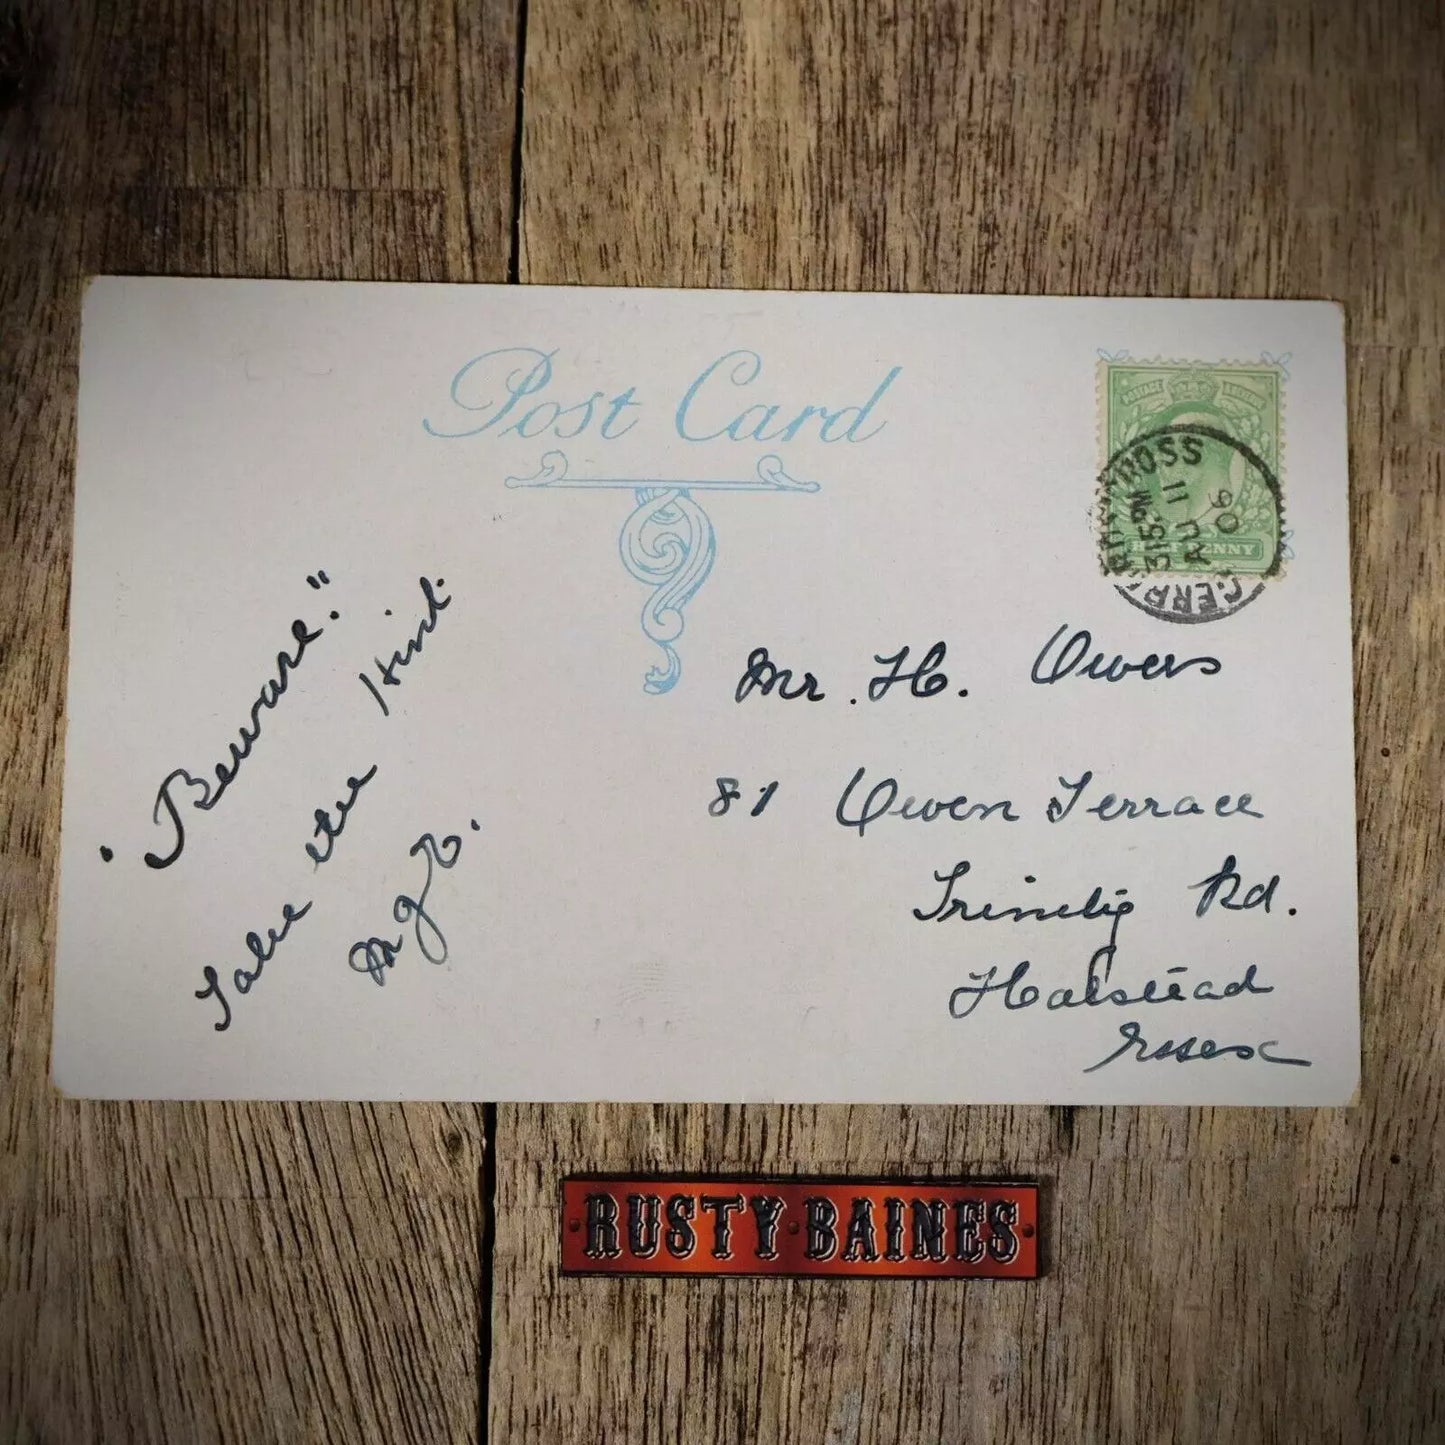 Post Card
POSTAGE & REVENUE
HALFPENNY
GERRARDS CROSS
3 15 PM
AU 11
06
"Beware."
Take the Hint.
Mr. H. Owers
81 Owen Terrace
Trinity Rd.
Halstead
Essex
RUSTY BAINES